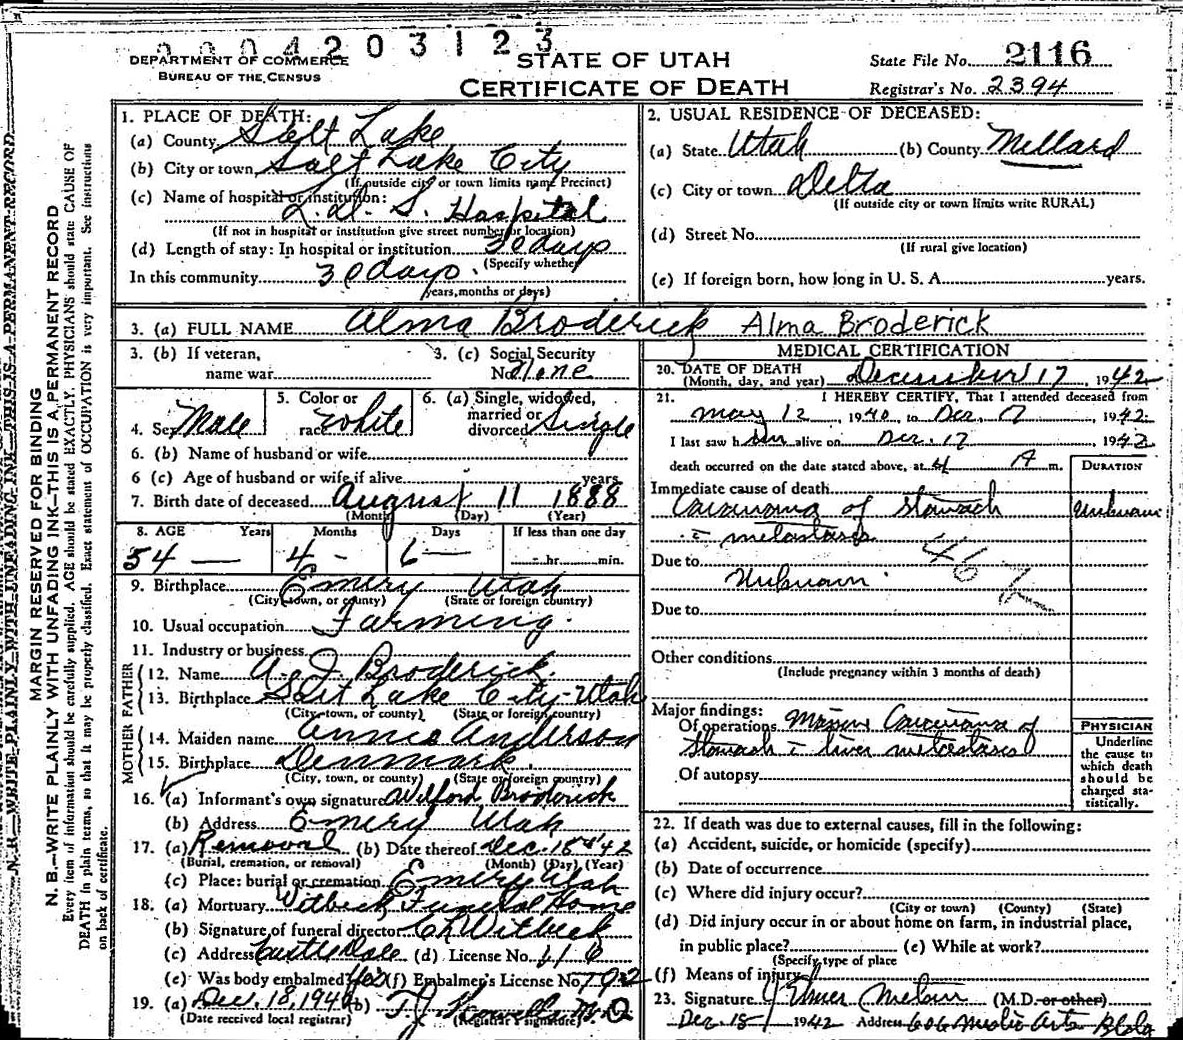 0004203123
DEPARTMENT OF COMMERCE
BUREAU OF THE CENSUS
STATE OF UTAH
CERTIFICATE OF DEATH
State File No. 2116
Registrar's No. 2394
MARGIN RESERVED FOR BINDING
N. B.—WRITE PLAINLY WITH UNFADING INK—THIS IS A PERMANENT RECORD
Every item of information should be carefully supplied. AGE should be stated EXACTLY. PHYSICIANS should state CAUSE OF
DEATH in plain terms, so that it may be properly classified. Exact statement of OCCUPATION is very important. See instructions
on back of certificate.
1. PLACE OF DEATH:
(a) County Salt Lake
(b) City or town Salt Lake City
(If outside city or town limits name Precinct)
(c) Name of hospital or institution:
L. D. S. Hospital
(If not in hospital or institution give street number or location)
(d) Length of stay: In hospital or institution 30 days
(Specify whether
In this community 30 days.
years, months or days)
2. USUAL RESIDENCE OF DECEASED:
(a) State Utah (b) County Millard
(c) City or town Delta
(If outside city or town limits write RURAL)
(d) Street No.
(If rural give location)
(e) If foreign born, how long in U. S. A. years.
3. (a) FULL NAME Alma Broderick Alma Broderick
3. (b) If veteran,
name war
3. (c) Social Security
No. None
4. Sex Male
5. Color or
race White
6. (a) Single, widowed,
married or
divorced Single
6. (b) Name of husband or wife
6 (c) Age of husband or wife if alive years
7. Birth date of deceased August 11 1888
(Month) (Day) (Year)
8. AGE Years Months Days If less than one day
54 — 4 - 6 — hr. min.
9. Birthplace Emery Utah
(City, town, or county) (State or foreign country)
10. Usual occupation Farming.
11. Industry or business
FATHER
12. Name A. J. Broderick.
13. Birthplace Salt Lake City-Utah
(City, town, or county) (State or foreign country)
MOTHER
14. Maiden name Annie Anderson
15. Birthplace Denmark.
(City, town, or county) (State or foreign country)
16. (a) Informant's own signature Wilford Broderick
(b) Address Emery Utah
17. (a) Removal (b) Date thereof Dec. 18 '42
(Burial, cremation, or removal) (Month) (Day) (Year)
(c) Place: burial or cremation Emery Utah
18. (a) Mortuary Witbeck Funeral Home
(b) Signature of funeral director Witbeck
(c) Address Castle Dale (d) License No.
(e) Was body embalmed? Yes (f) Embalmer's License No. 792
19. (a) Dec. 18, 194 (b) T. J. Howells M.D
(Date received local registrar) (Registrar's signature)
MEDICAL CERTIFICATION
20. DATE OF DEATH
(Month, day, and year) December 17, 1942
21. I HEREBY CERTIFY, That I attended deceased from
May 12, 1940, to Dec. 17, 1942
I last saw him alive on Dec. 17, 1942
death occurred on the date stated above, at 4 A m.
DURATION
Immediate cause of death
Carcinoma of Stomach Unknown
c̄ metastasis
Due to 46
Unknown.
Due to
Other conditions
(Include pregnancy within 3 months of death)
Major findings:
Of operations Massive Carcinoma of
stomach c̄ liver metastases
Of autopsy
PHYSICIAN
Underline
the cause to
which death
should be
charged sta-
tistically.
22. If death was due to external causes, fill in the following:
(a) Accident, suicide, or homicide (specify)
(b) Date of occurrence
(c) Where did injury occur?
(City or town) (County) (State)
(d) Did injury occur in or about home on farm, in industrial place,
in public place? (e) While at work?
(Specify type of place
(f) Means of injury
23. Signature (M.D. or other)
Dec. 18, 1942 Address 606 Medic Arts Bldg